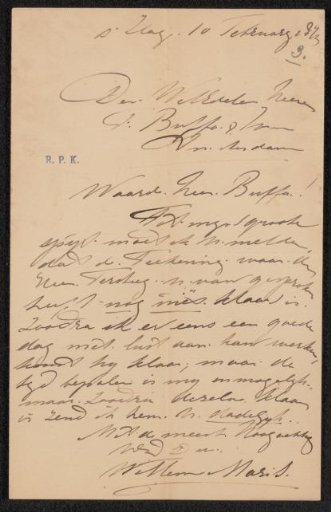 s' Hag. 10 Februarij
3.
Den WelEdelen Heeren
F. Buffa & Zoon
Amsterdam
R. P. K.
Waarde Heer Buffa!
Tot mijn groote
spijt moet ik U melden
dat de Teekening waar den
Heer Tersteeg U van gesproken
heeft nog niet klaar is.
Zoodra ik er eens een goede
dag met lust aan kan werken,
komt hij klaar, maar de
tijd bepalen is mij onmogelijk.
maar Zoodra dezelve klaar
is zend ik hem U dadelijk.
Met de meeste Hoogachting
Willem Maris.